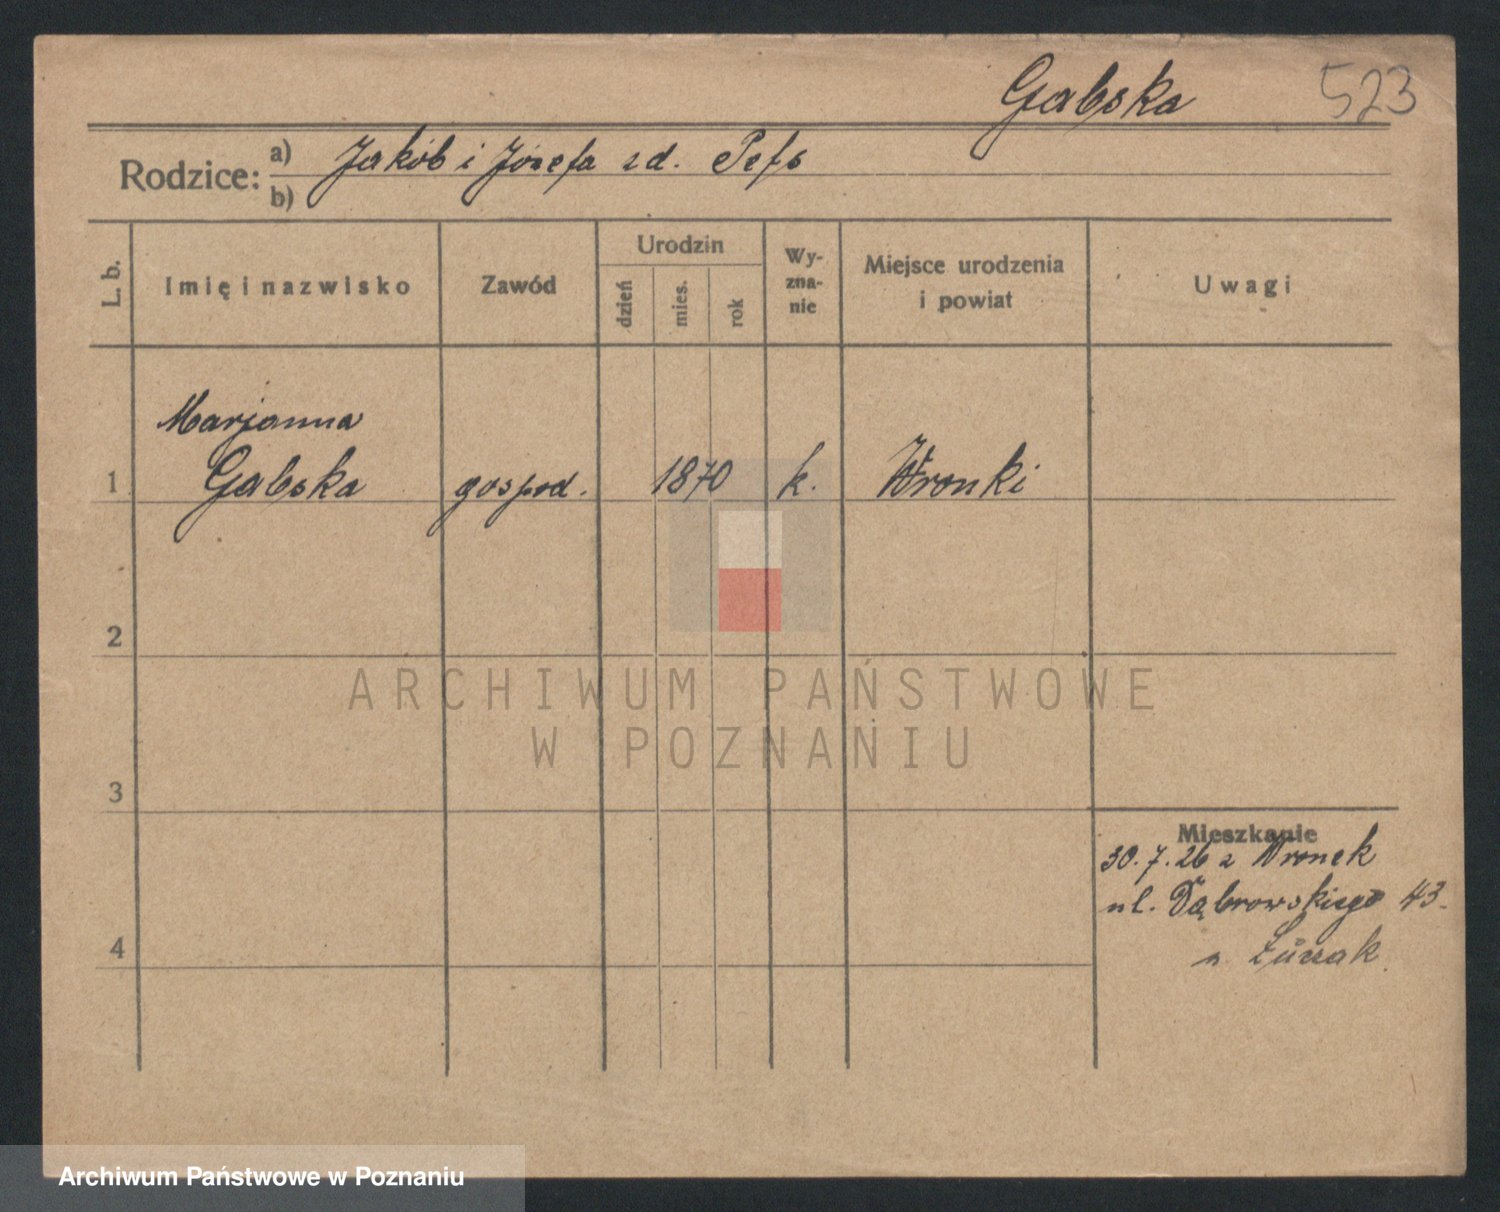 Gabska
523
Rodzice: a) Jakób i Józefa zd. Pefs
b)
L. b.
Imię i nazwisko
Zawód
Urodzin
dzień
mies.
rok
Wy-
zna-
nie
Miejsce urodzenia
i powiat
Uwagi
Marjanna
1 Gabska gospod. 1870 k. Wronki
2
ARCHIWUM PAŃSTWOWE
W POZNANIU
3
Mieszkanie
30.7.26 z Wronek
ul. Dąbrowskiego 43.
4
Archiwum Państwowe w Poznaniu